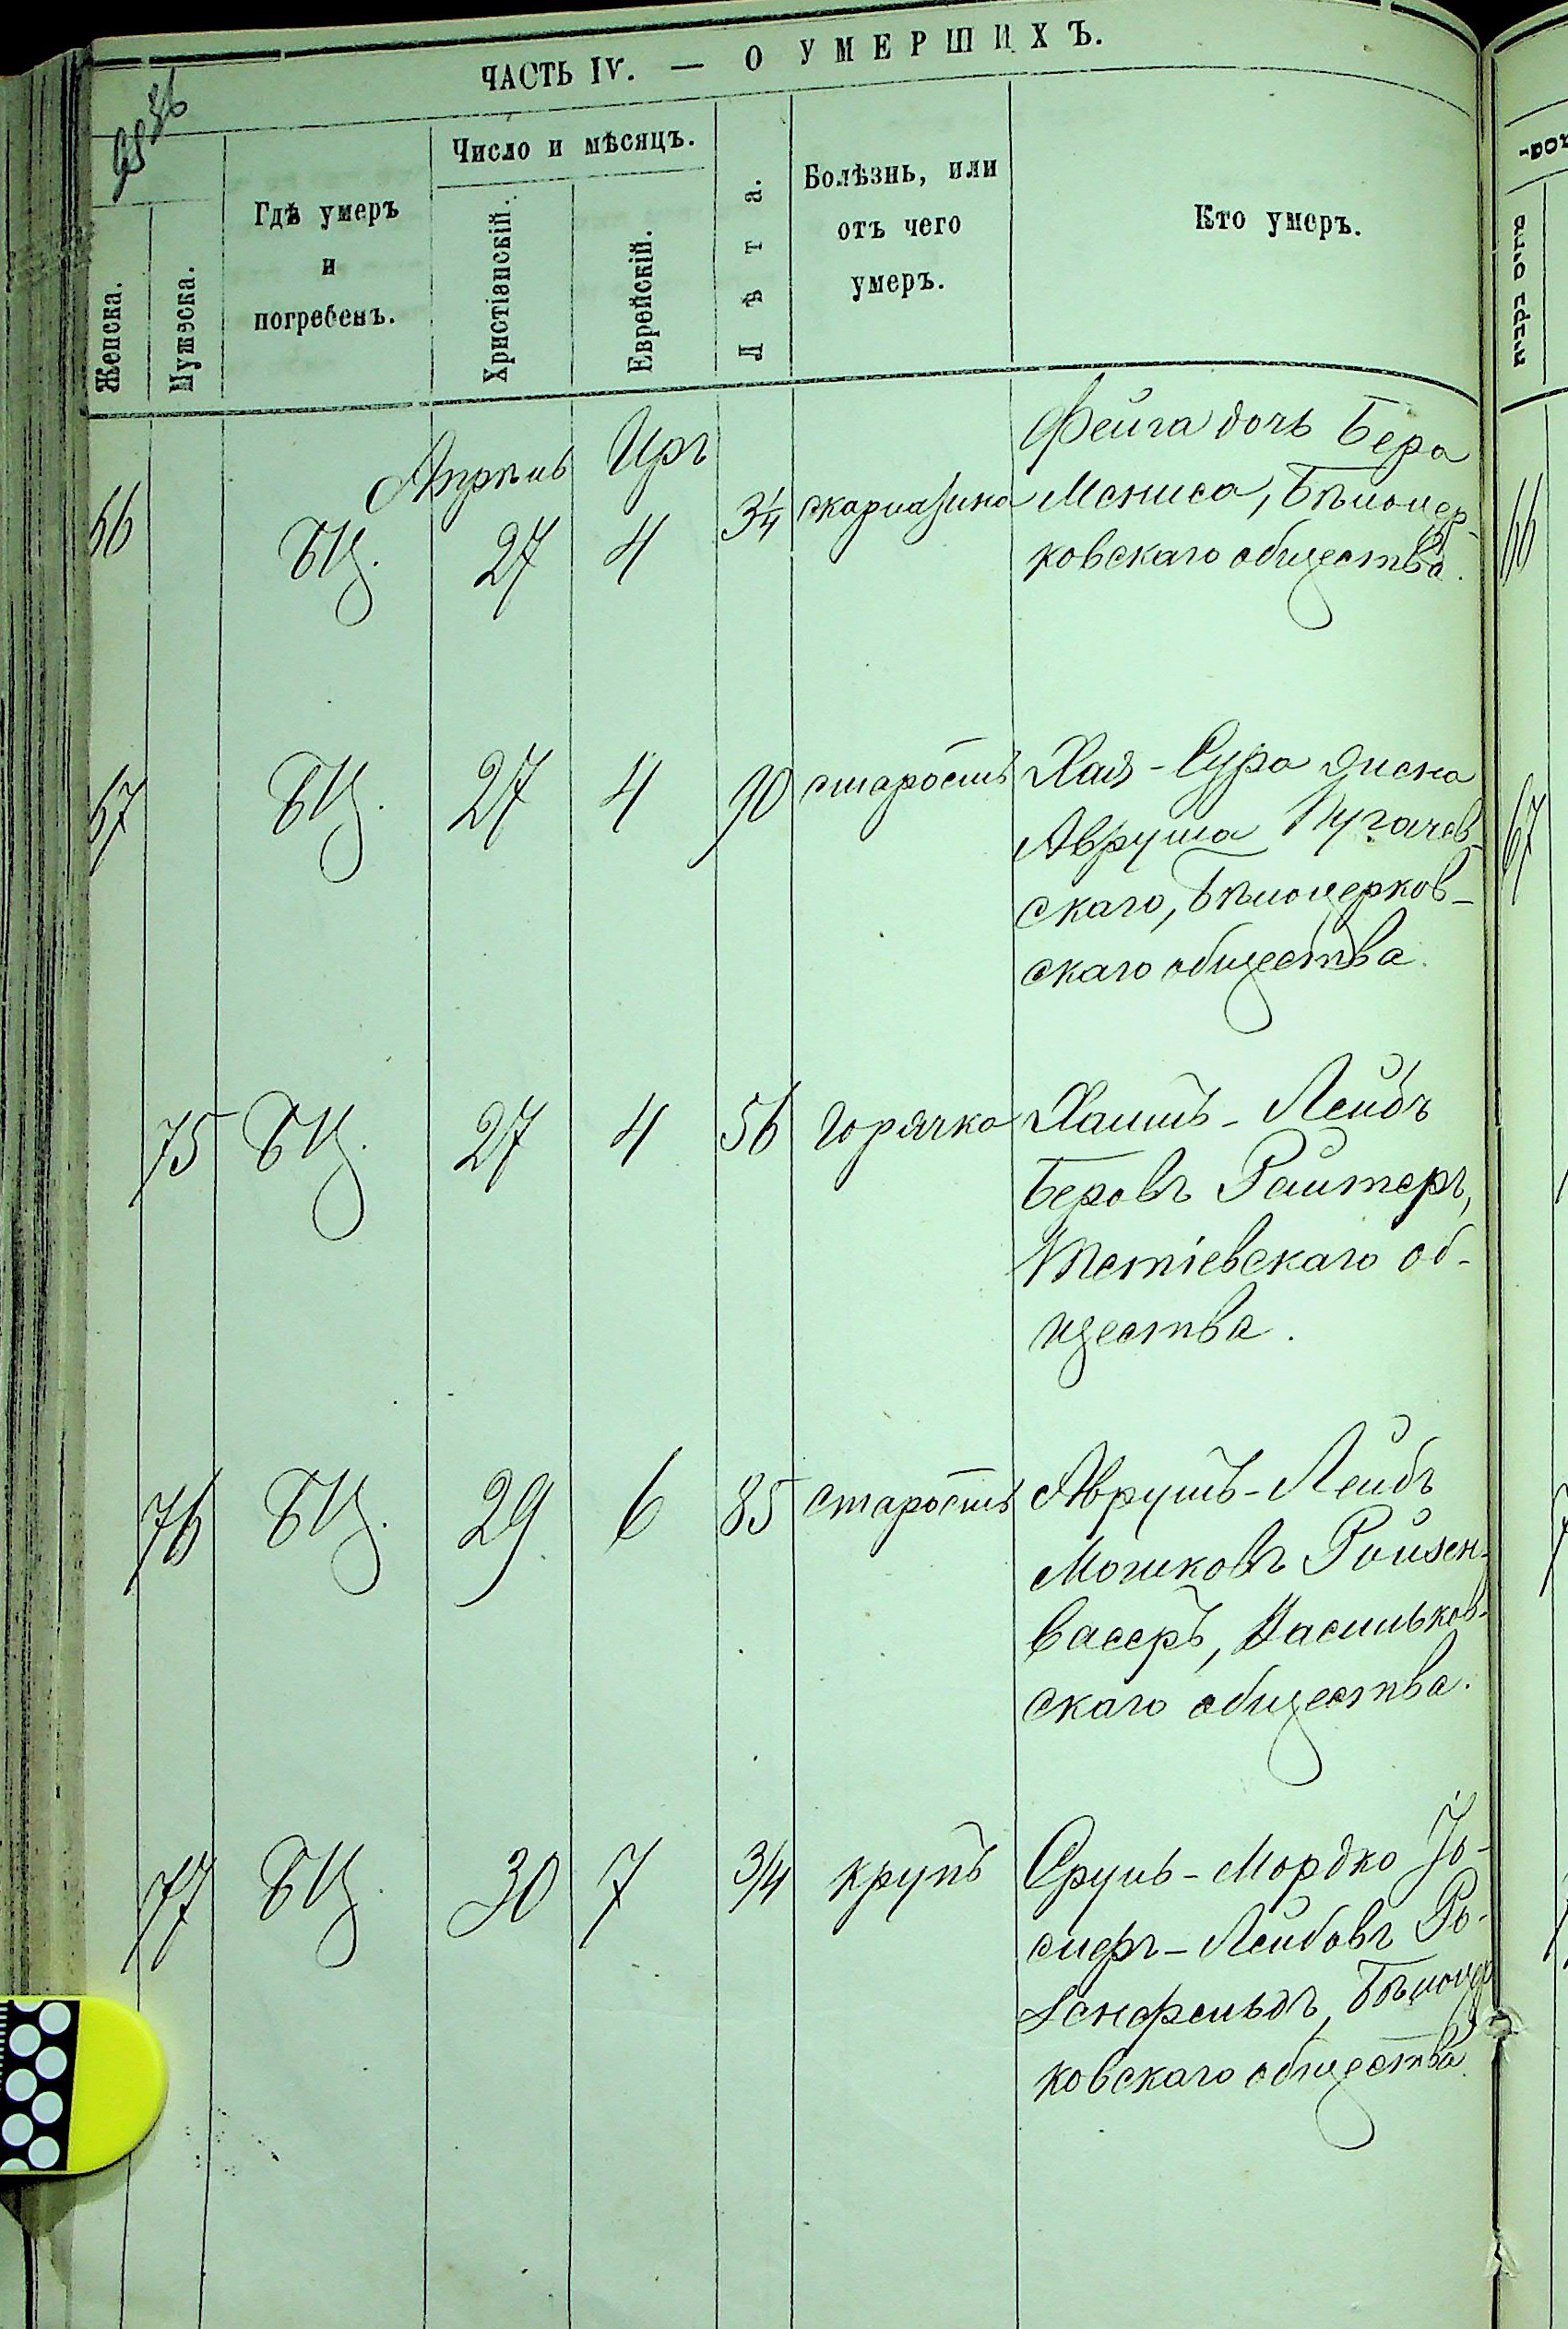 ЧАСТЬ IV. — О УМЕРШИХЪ.
Женска.
Мужеска.
Гдѣ умеръ
и
погребенъ.
Число и мѣсяцъ.
Христіанскій.
Еврейскій.
Лѣта.
Болѣзнь, или
отъ чего
умеръ.
Кто умеръ.
Апрѣль Иръ
66 БЦ. 27 4 3¼ скарлатина
Фейга дочь Бера
Мениса, Бѣлоцер-
ковскаго общества.
67 БЦ. 27 4 90 старость
Хая-Сура жена
Аврума Пугачев-
скаго, Бѣлоцерков-
скаго общества.
75 БЦ. 27 4 56 горячка
Хаимъ-Лейбъ
Беровъ Райтеръ,
Тетіевскаго об-
щества.
76 БЦ. 29 6 85 старость
Аврумъ-Лейбъ
Мошковъ Ройзен-
васеръ, Васильков-
скаго общества.
77 БЦ. 30 7 3/4 крупъ
Сруль-Мордко Іо-
сифъ-Лейбовъ Ро-
зенфельдъ, Бѣлоцер
ковскаго общества.
66
67